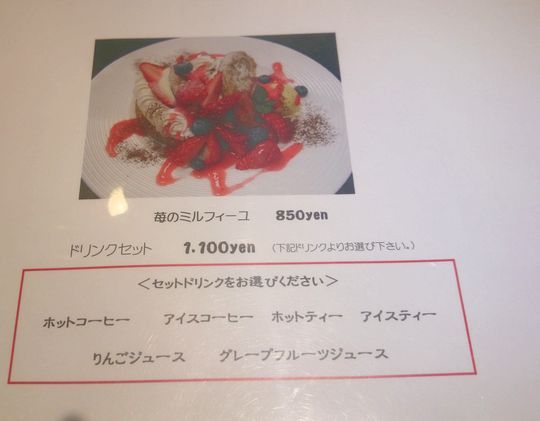 苺のミルフィーユ 850yen
ドリンクセット 1.100yen (下記ドリンクよりお選び下さい。)
＜セットドリンクをお選びください＞
ホットコーヒー アイスコーヒー ホットティー アイスティー
りんごジュース グレープフルーツジュース